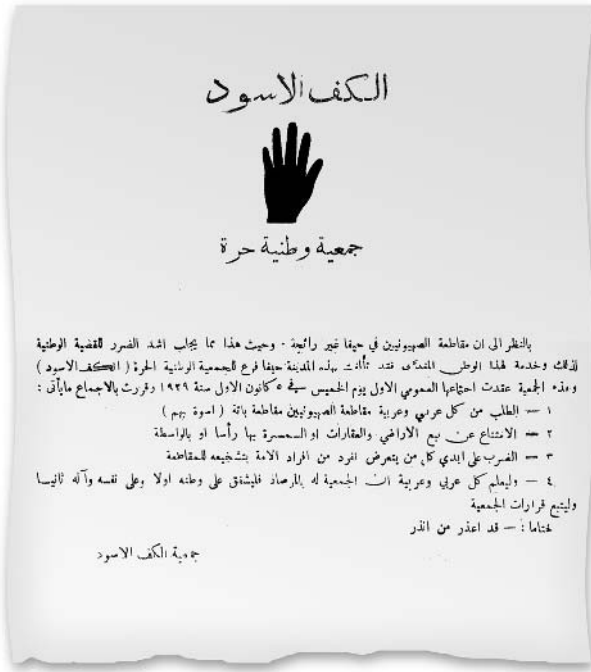 الكف الاسود
جمعية وطنية حرة
بالنظر الى ان مقاطعة الصهيونيين في حيفا غير رائجة . وحيث هذا مما يجلب اشد الضرر للقضية الوطنية
لذلك وخدمة لهذا الوطن المفدى فقد تألفت بهذه المدينة حيفا فرع للجمعية الوطنية الحرة ( الكف الاسود )
وهذه الجمعية عقدت اجتماعها العمومي الاول يوم الخميس في ٥ كانون الاول سنة ١٩٢٩ وقررت بالاجماع مايأتى :
١ — الطلب من كل عربي وعربية مقاطعة الصهيونيين مقاطعة باتة ( اسوة بهم )
٢ — الامتناع عن بيع الاراضي والعقارات او السمسرة بها رأسا او بالواسطة
٣ — الضرب على ايدي كل من يتعرض لفرد من افراد الامة بتشجيعه للمقاطعة
٤ — وليعلم كل عربي وعربية ان الجمعية له بالمرصاد فليشفق على وطنه اولا وعلى نفسه وآله ثانيا
وليتبع قرارات الجمعية
ختاما : — قد اعذر من انذر
جمعية الكف الاسود